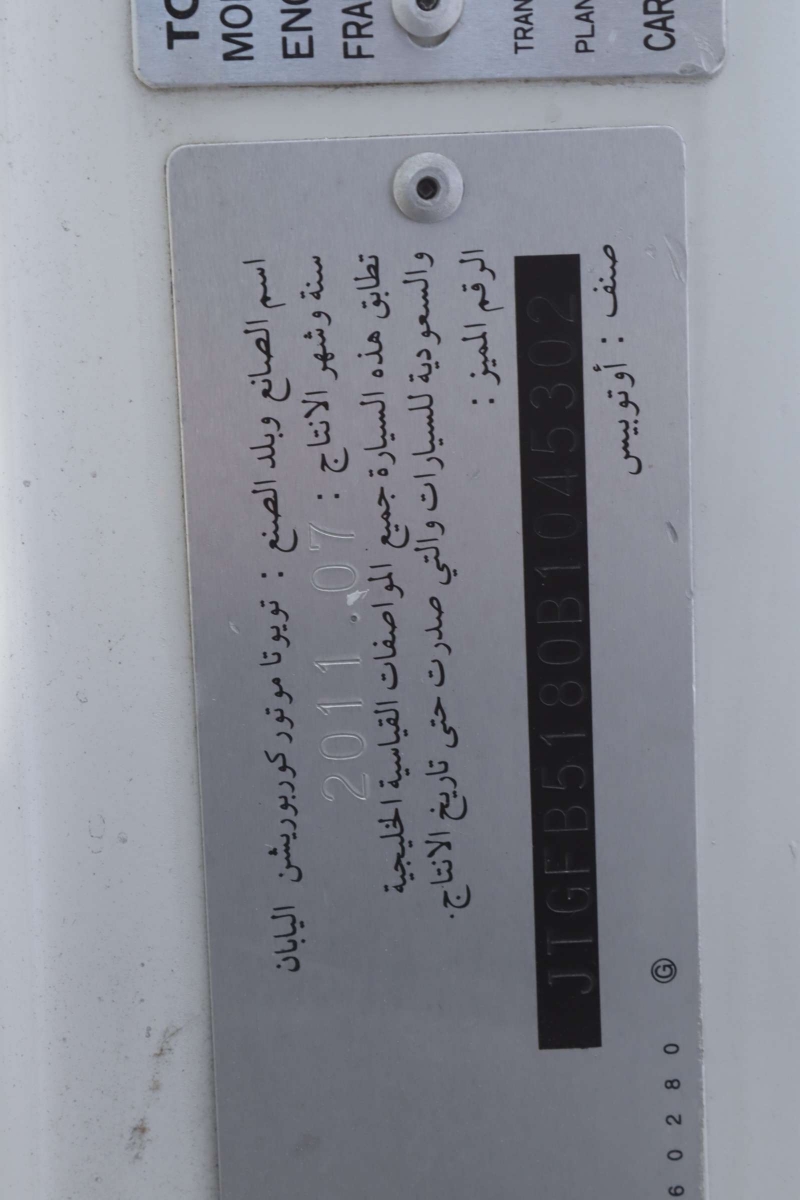 TO
MO
ENG
FRA
TRAN
PLAN
CAR
اسم الصانع وبلد الصنع : تويوتا موتور كوربوريشن اليابان
سنة وشهر الانتاج : 2011.07
تطابق هذه السيارة جميع المواصفات القياسية الخليجية
والسعودية للسيارات والتي صدرت حتى تاريخ الانتاج.
الرقم المميز :
JTGFB5180B1045302
صنف : أوتوبيس
60280 G